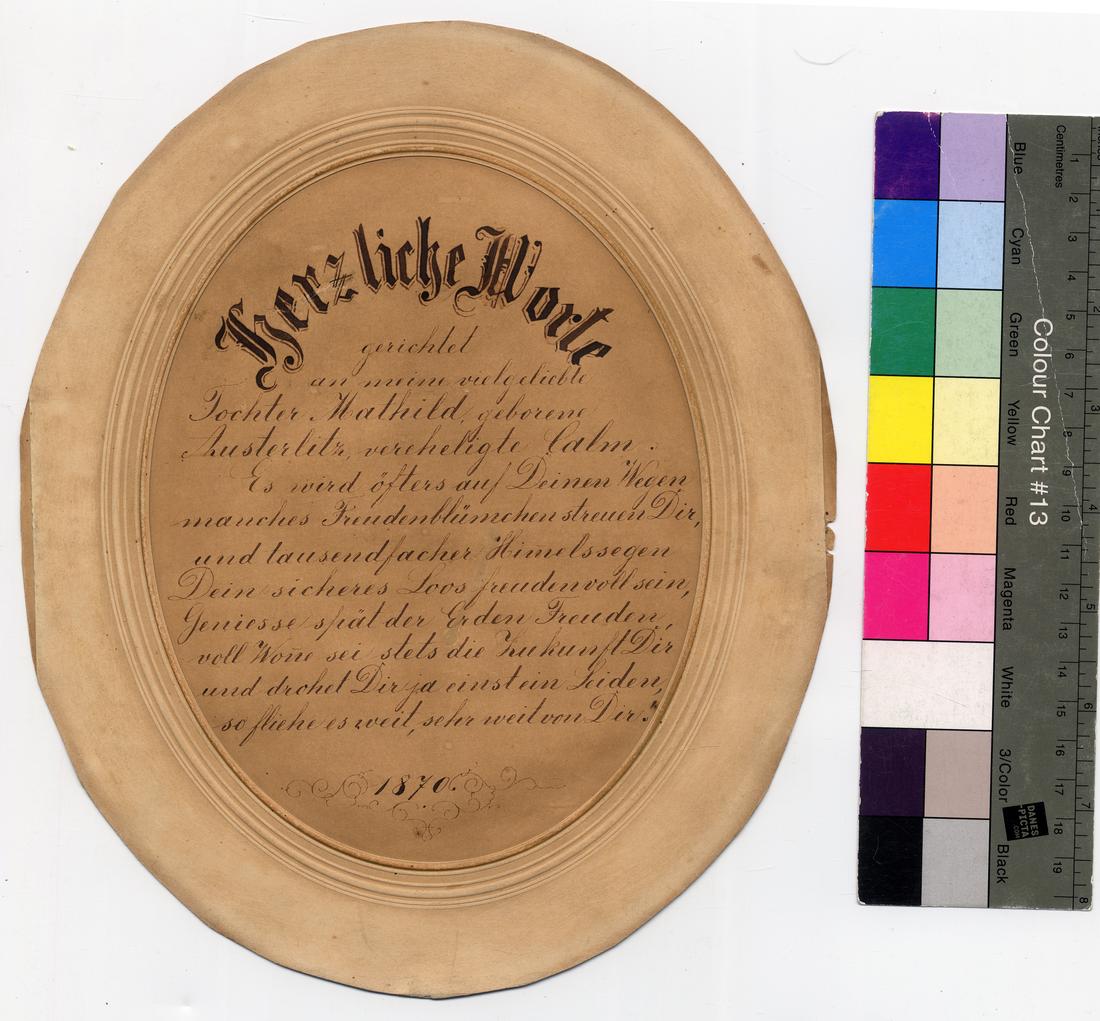 Herzliche Worte
gerichtet
an meine vielgeliebte
Tochter Mathild, geborene
Austerlitz, vereheligte Calm.
Es wird öfters auf Deinen Wegen
manches Freudenblümchen streuen Dir,
und tausendfacher Him̅elssegen
Dein sicheres Loos freudenvoll sein,
Geniesse spät der Erden Freuden,
voll Won̅e sei stets die Zukunft Dir
und drohet Dir ja einst ein Leiden,
so fliehe es weit, sehr weit von Dir
1870.
Colour Chart #13
Blue
Cyan
Green
Yellow
Red
Magenta
White
3/Color
Black
Centimetres
1 2 3 4 5 6 7 8 9 10 11 12 13 14 15 16 17 18 19
2 3 4 5 6 7 8
DANES
-PICTA
.COM